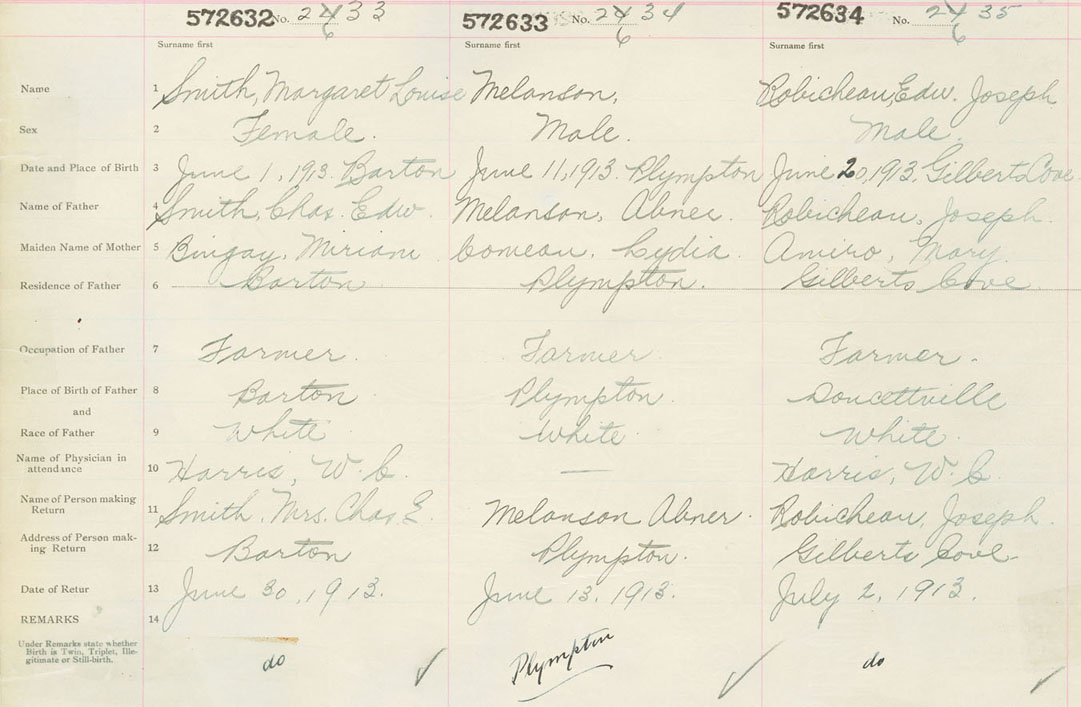 572632 No. 2433 572633 No. 2434 572634 No. 2435
6 6 6
Surname first Surname first Surname first
Name 1 Smith, Margaret Louise Melanson, Robicheau, Edw. Joseph
Sex 2 Female. Male. Male.
Date and Place of Birth 3 June 1, 1913. Barton June 11, 1913. Plympton June 20, 1913. Gilberts Cove
Name of Father 4 Smith, Chas. Edw. Melanson, Abner. Robicheau, Joseph.
Maiden Name of Mother 5 Bingay, Miriam Comeau, Lydia. Amiro, Mary.
Residence of Father 6 Barton Plympton. Gilberts Cove
Occupation of Father 7 Farmer. Farmer Farmer.
Place of Birth of Father 8 Barton Plympton. Doucettville
and
Race of Father 9 White White. White.
Name of Physician in
attendance 10 Harris, W. C. — Harris, W. C.
Name of Person making
Return 11 Smith, Mrs. Chas. E. Melanson Abner. Robicheau, Joseph.
Address of Person mak-
ing Return 12 Barton Plympton. Gilberts Cove
Date of Retur 13 June 30, 1913. June 13, 1913. July 2, 1913.
REMARKS 14
Under Remarks state whether
Birth is Twin, Triplet, Ille-
gitimate or Still-birth.
do Plympton do